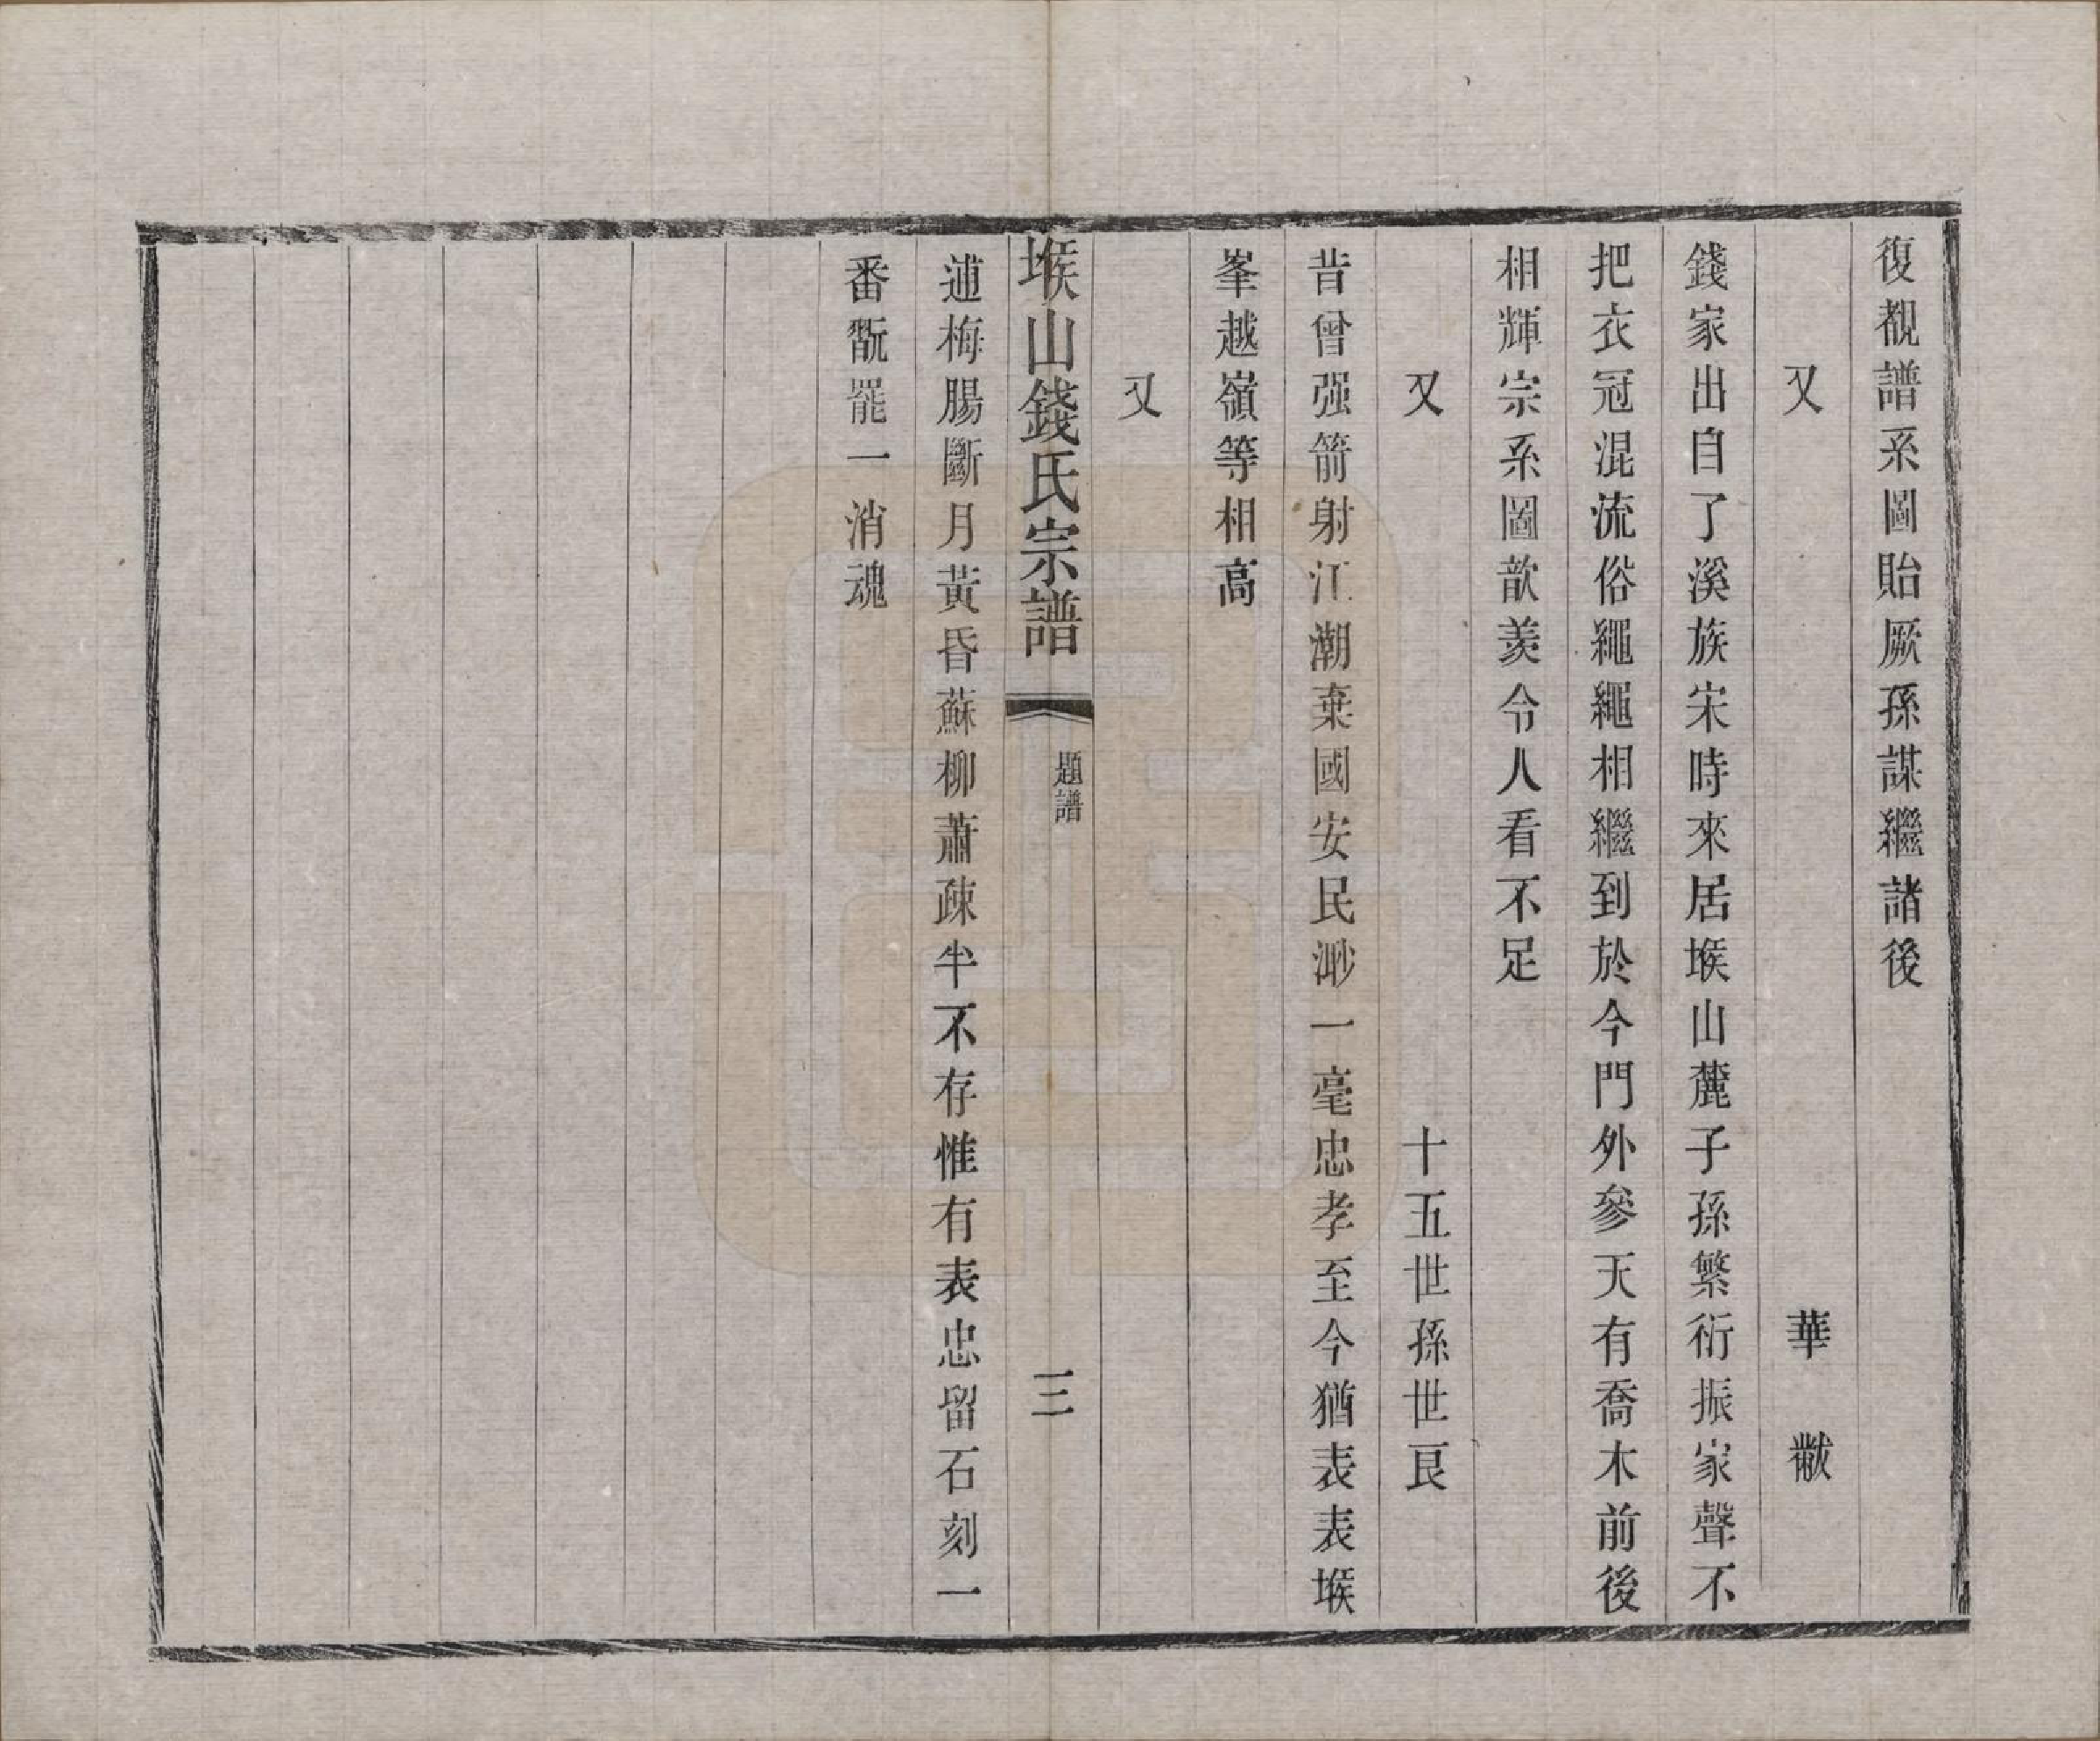 復觀譜系圖貽厥孫謀繼諸後
又　華　黻
錢家出自了溪族宋時來居堠山麓子孫繁衍振家聲不
把衣冠混流俗繩繩相繼到於今門外參天有喬木前後
相輝宗系圖歆羡令人看不足
又　十五世孫世艮
昔曾强箭射江潮棄國安民渺一毫忠孝至今猶表表堠
峯越嶺等相高
又
堠山錢氏宗譜　題譜　三
逋梅腸斷月黃昏蘇柳蕭疎半不存惟有表忠留石刻一
番翫罷一消魂